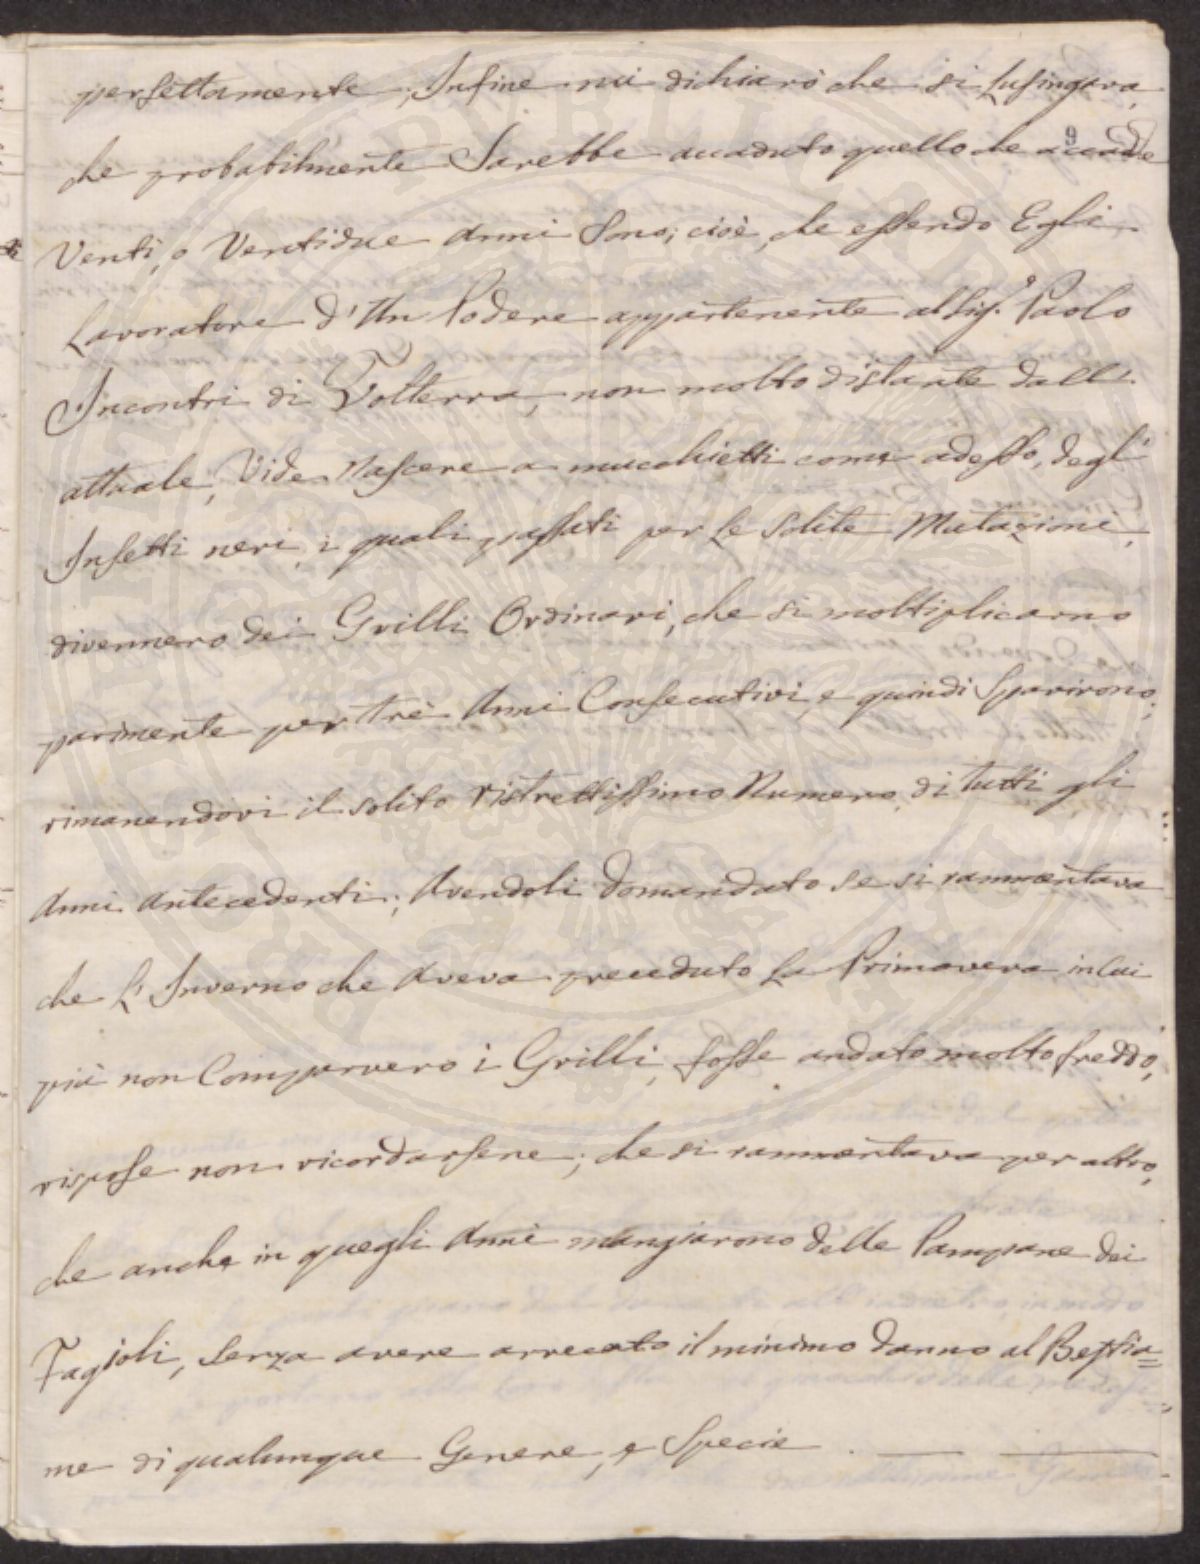 perfettamente; Infine mi dichiarò che si lusingava,
9
che probabilmente Sarebbe accaduto quello che accadde
Venti, o Ventidue Anni Sono; cioè, che essendo Egli
Lavoratore d'Un Podere appartenente al Sig.e Paolo
Incontri di Volterra, non molto distante dall'
attuale, Vide Nascere a mucchietti come adesso, degl'
Insetti neri, i quali passati per le Solite Mutazioni,
divennero dei Grilli Ordinari, che si moltiplicarno
parimente per trè Anni Consecutivi, e quindi Sparirono;
rimanendovi il solito ristrettissimo Numero di tutti gli
Anni Antecedenti; Avendoli Domandato se si rammentava
che L'Inverno che Aveva preceduto La Primavera in cui
più non Comparvero i Grilli, fosse andato molto freddo,
rispose non ricordarsene; che si rammentava per altro,
che anche in quegli Anni mangiarono delle Pampane dei
Fagioli, Senza avere arrecato il minimo Danno al Bestia=
me di qualunque Genere, e Specie